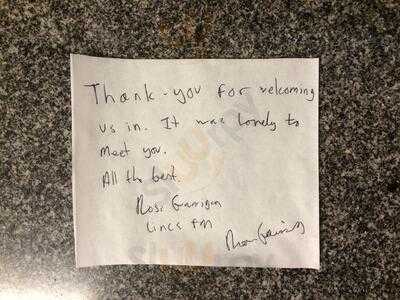 Thank-you for welcoming
us in. It was lovely to
meet you.
All the best.
Rosi Garrigan
Lincs FM